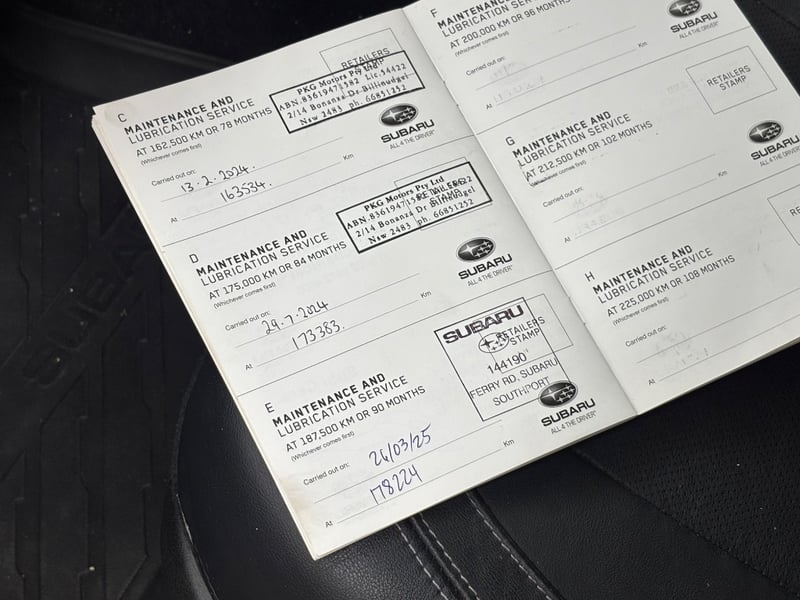 C
MAINTENANCE AND
LUBRICATION SERVICE
AT 162,500 KM OR 78 MONTHS
(Whichever comes first)
RETAILERS
PKG Motors Pty Ltd
ABN.83619471582 Lic.54422
2/14 Bonanza Dr Billinudgel
Nsw 2483 ph 66851252
SUBARU
ALL 4 THE DRIVER
Carried out on:
13.2.2024.
At 163534. Km
D
MAINTENANCE AND
LUBRICATION SERVICE
AT 175,000 KM OR 84 MONTHS
(Whichever comes first)
RETAILERS
STAMP
PKG Motors Pty Ltd
2/14 Bonanza Dr Billinudgel
Nsw 2483 ph 66851252
SUBARU
ALL 4 THE DRIVER
Carried out on:
29.7.2024
At 173383. Km
E
MAINTENANCE AND
LUBRICATION SERVICE
AT 187,500 KM OR 90 MONTHS
(Whichever comes first)
SUBARU
RETAILERS
STAMP
144190
FERRY RD, SUBARU
SOUTHPORT
SUBARU
ALL 4 THE DRIVER
Carried out on: 26/03/25
At 178224 Km
F
MAINTENANCE AND
LUBRICATION SERVICE
AT 200,000 KM OR 96 MONTHS
(Whichever comes first)
SUBARU
ALL 4 THE DRIVER
Carried out on:
At Km
G
MAINTENANCE AND
LUBRICATION SERVICE
AT 212,500 KM OR 102 MONTHS
(Whichever comes first)
RETAILERS
STAMP
SUBARU
ALL 4 THE DRIVER
Carried out on:
At Km
H
MAINTENANCE AND
LUBRICATION SERVICE
AT 225,000 KM OR 108 MONTHS
(Whichever comes first)
Carried out on:
At
SUBARU